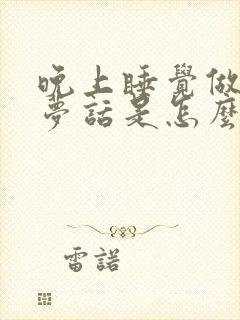 晚上睡覺做
夢話是怎麼
雷諾